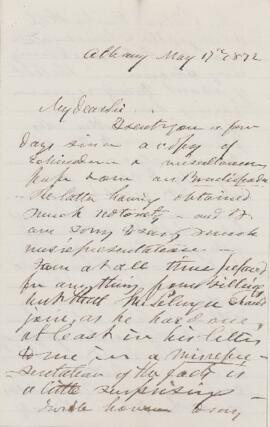 Albany May 17th 1872
My dear Sir
I sent you a few
days since a copy of
a miscellaneous
The latter having obtained
much notoriety — and I
am sorry to say much
misrepresentation —
I am at all times prepared
for anything from
but that should
join, as he has done,
at least in his letter
to me, in a misrepre-
sentation of the facts is
a little surprising —
I write however to say